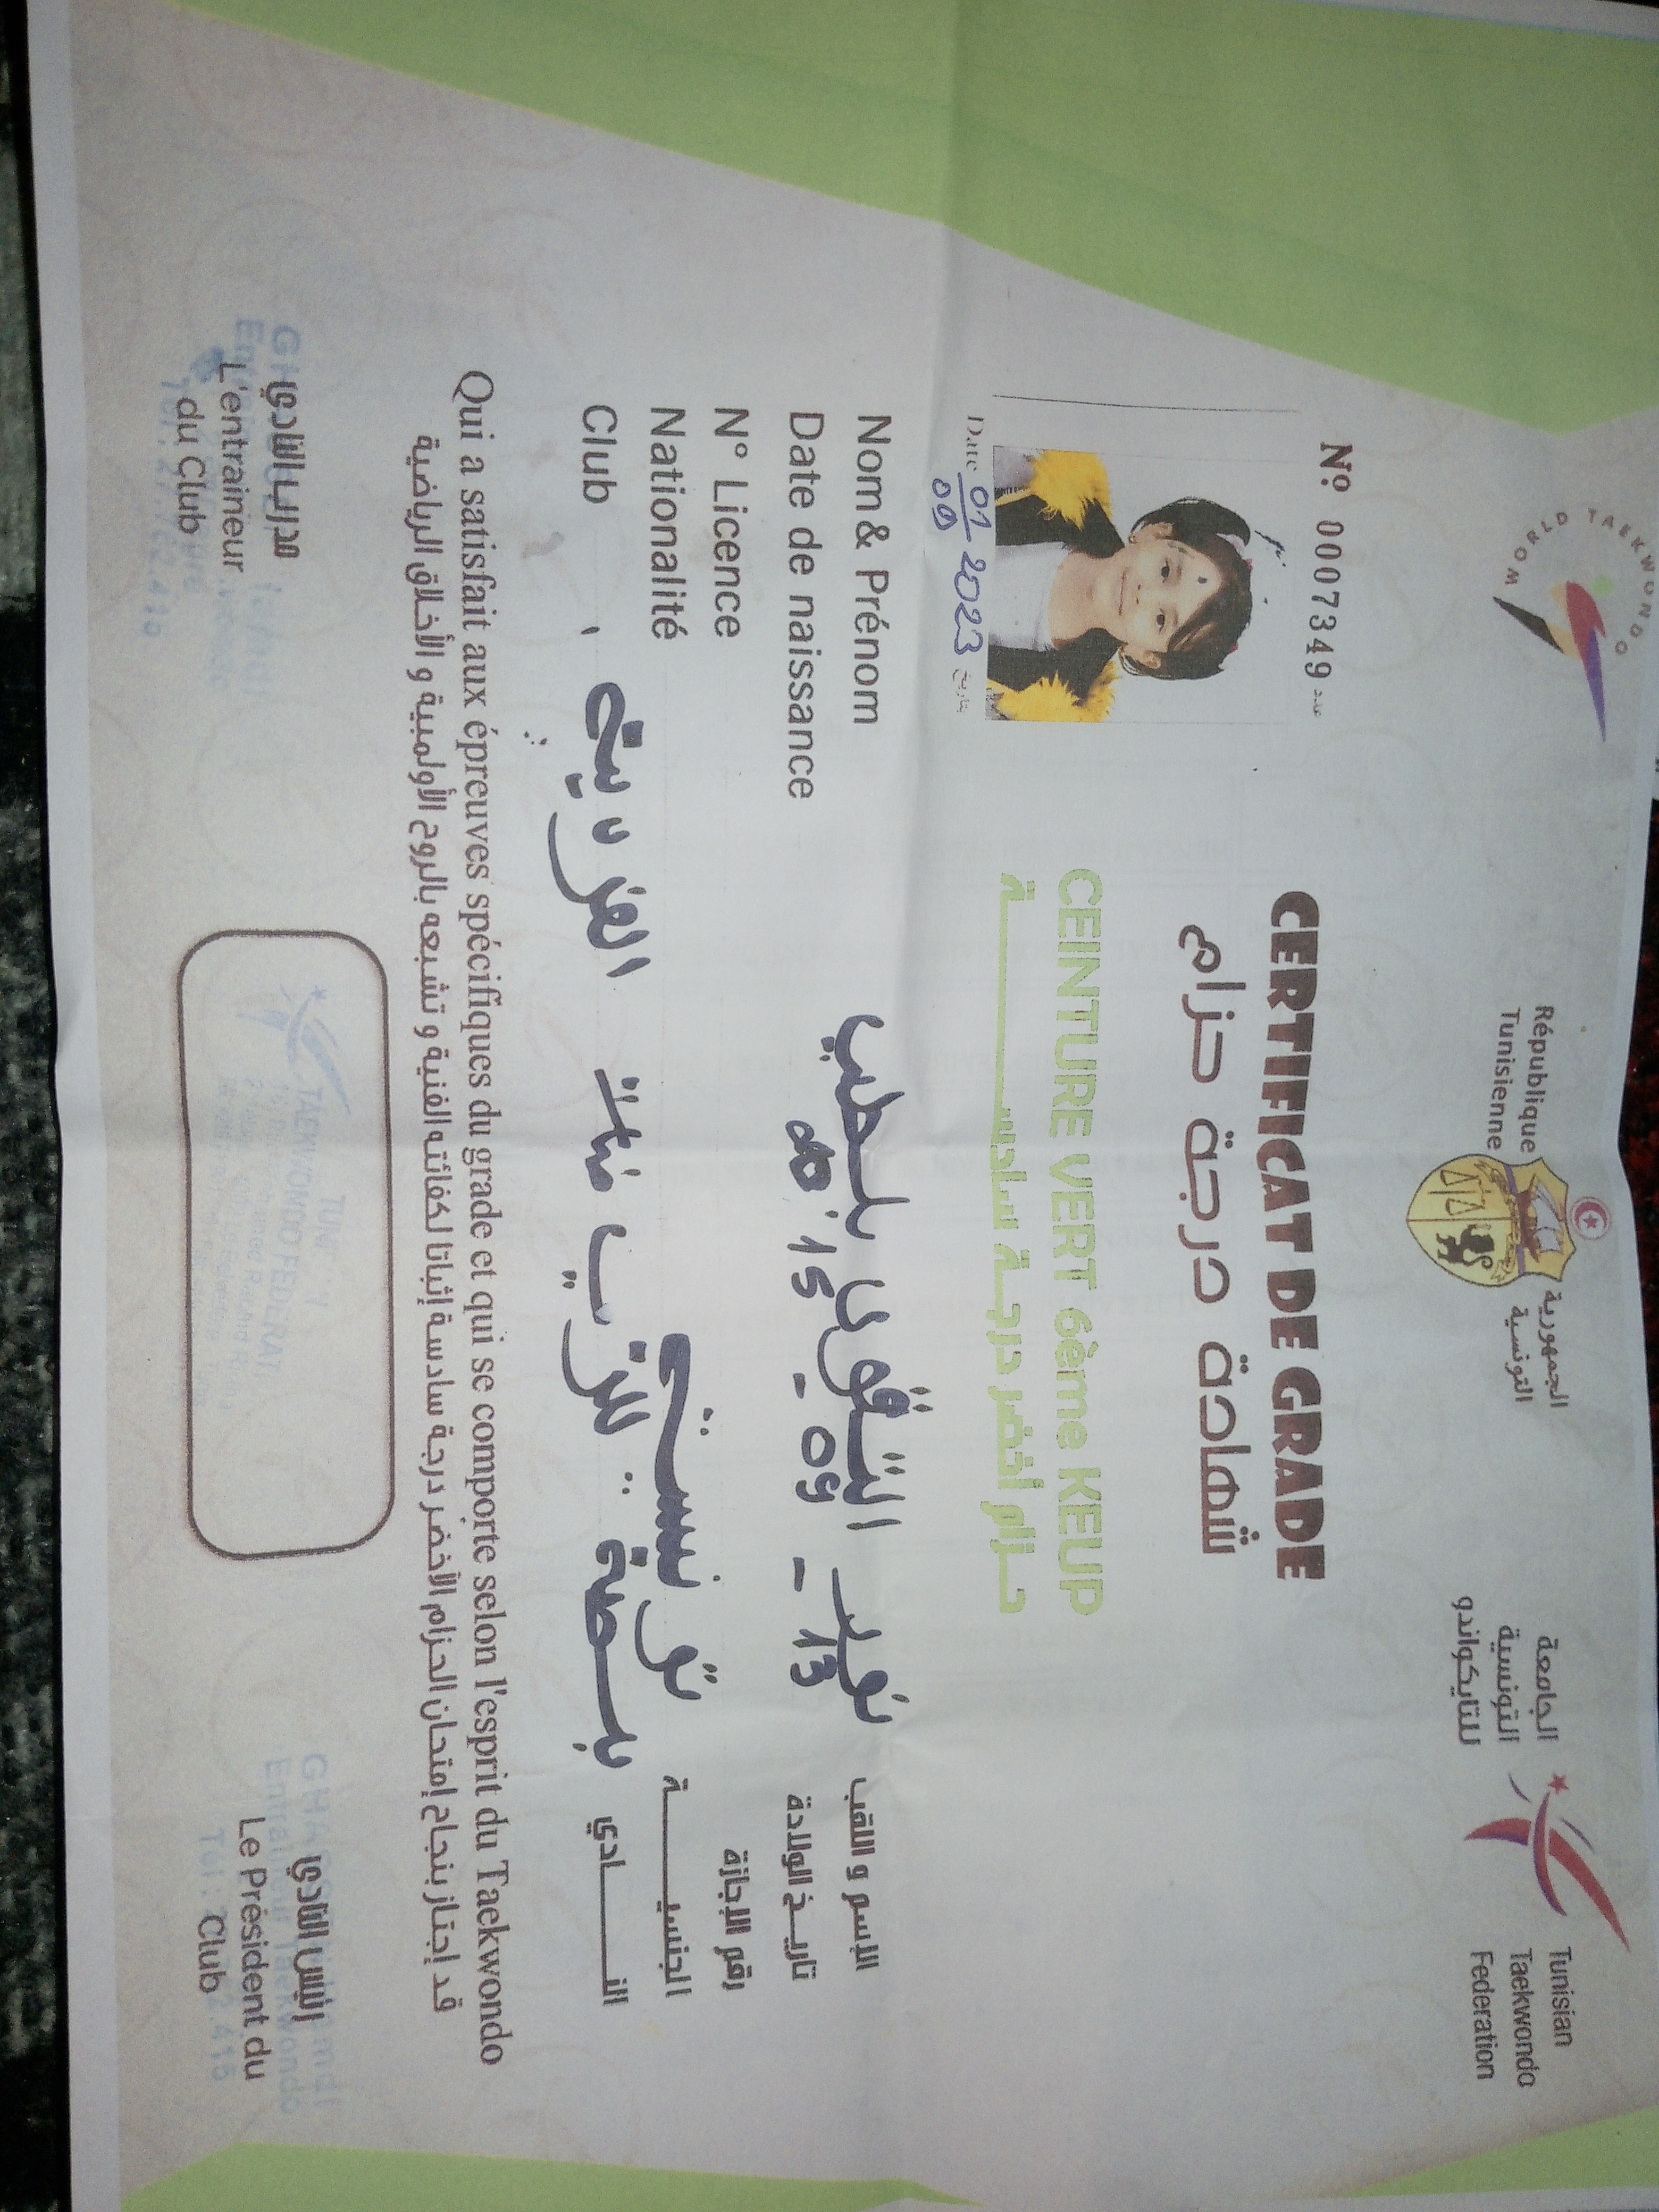 WORLD TAEKWONDO
République
Tunisienne
الجمهورية
التونسية
الجامعة
التونسية
للتايكواندو
Tunisian
Taekwondo
Federation
Nº 0007349 عدد
CERTIFICAT DE GRADE
شهادة درجة حزام
CEINTURE VERT 6ème KEUP
حـزام أخضر درجـة سادســـة
Date 01/09 2023 بتاريخ
Nom& Prénom الإسم و اللقب
Date de naissance 13 - 09 - تاريـخ الولادة
N° Licence رقم الإجازة
Nationalité الجنسيـــة
Club النـــادي
Qui a satisfait aux épreuves spécifiques du grade et qui se comporte selon l'esprit du Taekwondo
قد إجتاز بنجاح إمتحان الحزام الأخضر درجة سادسة إثباتا لكفائته الفنية و تشبعه بالروح الأولمبية و الأخلاق الرياضية
مدرب النادي
L'entraineur
du Club
رئيس النادي
Le Président du
Club
TAEKWONDO FEDERATI